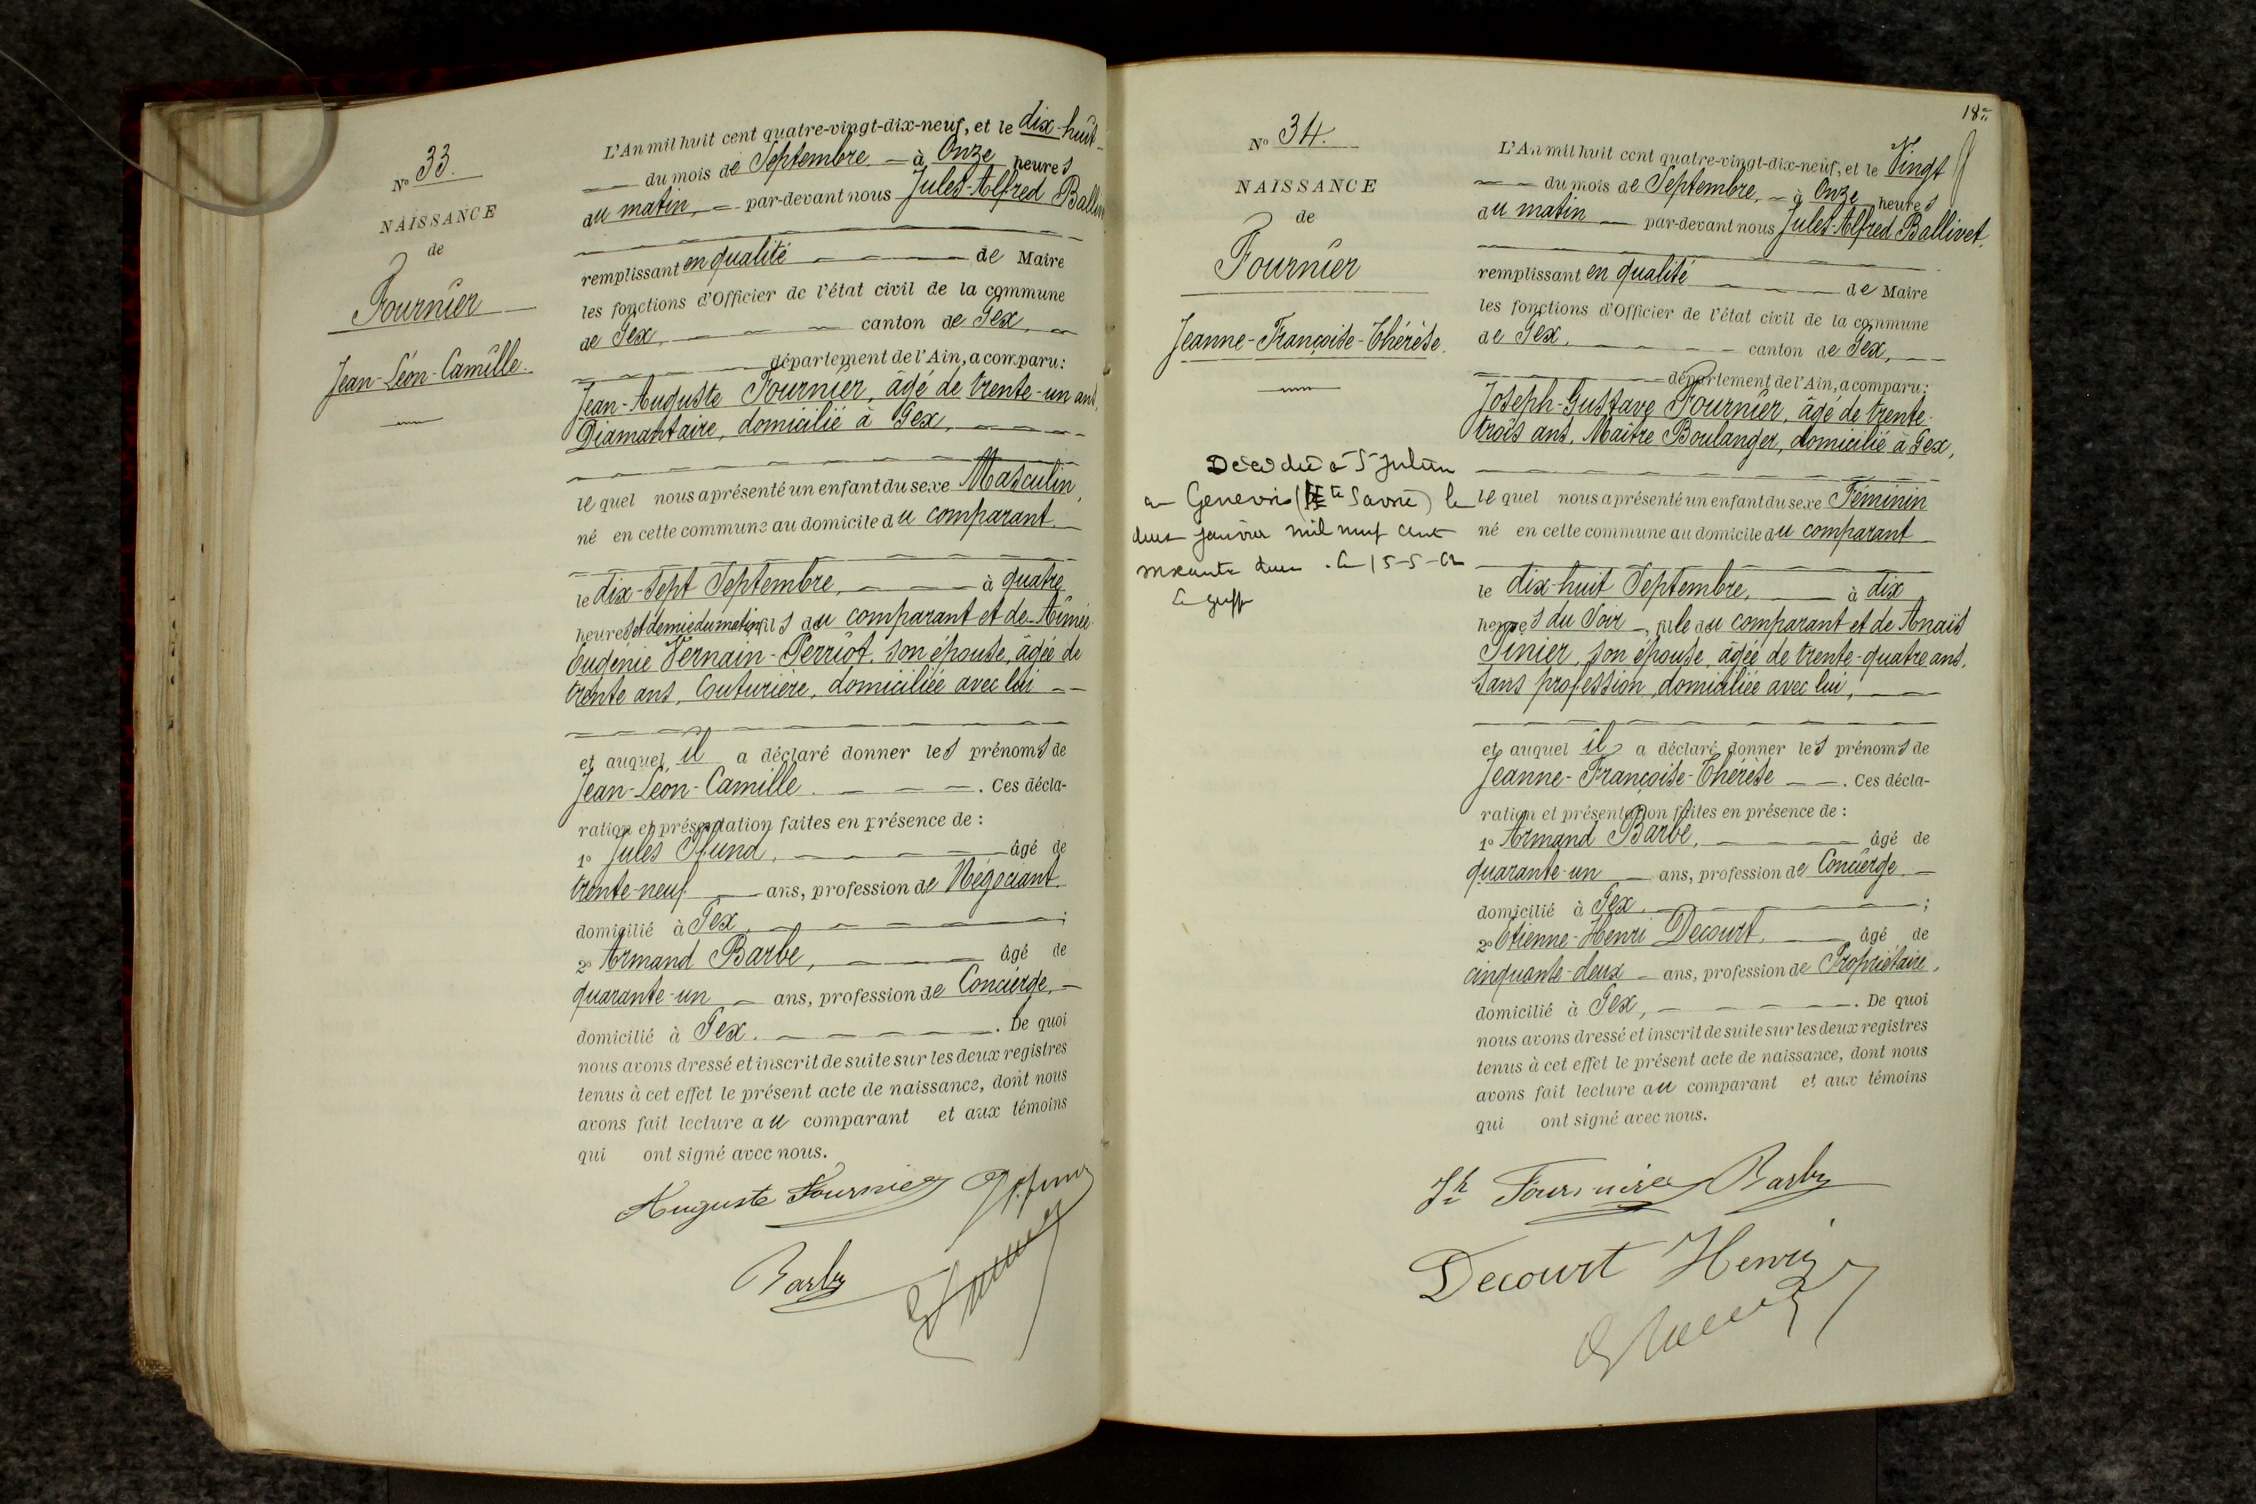 N° 33.
NAISSANCE
de
Fournier
Jean-Léon-Camille.
L'An mil huit cent quatre-vingt-dix-neuf, et le dix-huit
du mois de Septembre à Onze heures
du matin, par-devant nous Jules-Alfred
remplissant en qualité de Maire
les fonctions d'Officier de l'état civil de la commune
de Gex, canton de Gex,
département de l'Ain, a comparu:
Jean-Auguste Fournier, âgé de trente-un ans,
Diamantaire, domicilié à Gex,
lequel nous a présenté un enfant du sexe Masculin,
né en cette commune au domicile du comparant
le dix-sept Septembre, à quatre
heures et demie du matin, fils du comparant et de Aimée
Eugénie Vernain-Perriot, son épouse, âgée de
trente ans, Couturière, domiciliée avec lui
et auquel il a déclaré donner les prénoms de
Jean-Léon-Camille. Ces décla-
ration et présentation faites en présence de :
1° Jules Pfund, âgé de
trente-neuf ans, profession de Négociant
domicilié à Gex ;
2° Armand Barbe, âgé de
quarante-un ans, profession de Concierge,
domicilié à Gex. De quoi
nous avons dressé et inscrit de suite sur les deux registres
tenus à cet effet le présent acte de naissance, dont nous
avons fait lecture au comparant et aux témoins
qui ont signé avec nous.
Auguste Fournier
Barbe
18
N° 34.
NAISSANCE
de
Fournier
Jeanne-Françoise-Thérèse.
Décédée à St Julien
en Genevois (Hte Savoie) le
deux janvier mil neuf cent
soixante deux. Le 15-5-62
Le greff
L'An mil huit cent quatre-vingt-dix-neuf, et le Vingt
du mois de Septembre, à Onze heures
du matin par-devant nous Jules-Alfred Ballivet,
remplissant en qualité de Maire
les fonctions d'Officier de l'état civil de la commune
de Gex, canton de Gex,
département de l'Ain, a comparu:
Joseph-Gustave Fournier, âgé de trente-
trois ans, Maître Boulanger, domicilié à Gex,
lequel nous a présenté un enfant du sexe Féminin
né en cette commune au domicile du comparant
le dix-huit Septembre, à dix
heures du Soir, fille du comparant et de Anaïs
Pinier, son épouse, âgée de trente-quatre ans,
sans profession, domiciliée avec lui,
et auquel il a déclaré donner les prénoms de
Jeanne-Françoise-Thérèse. Ces décla-
ration et présentation faites en présence de :
1° Armand Barbe, âgé de
quarante-un ans, profession de Concierge
domicilié à Gex, ;
2° Etienne-Henri Decourt, âgé de
cinquante-deux ans, profession de Propriétaire,
domicilié à Gex, . De quoi
nous avons dressé et inscrit de suite sur les deux registres
tenus à cet effet le présent acte de naissance, dont nous
avons fait lecture au comparant et aux témoins
qui ont signé avec nous.
Jh Fournier Barbe
Decourt Henri